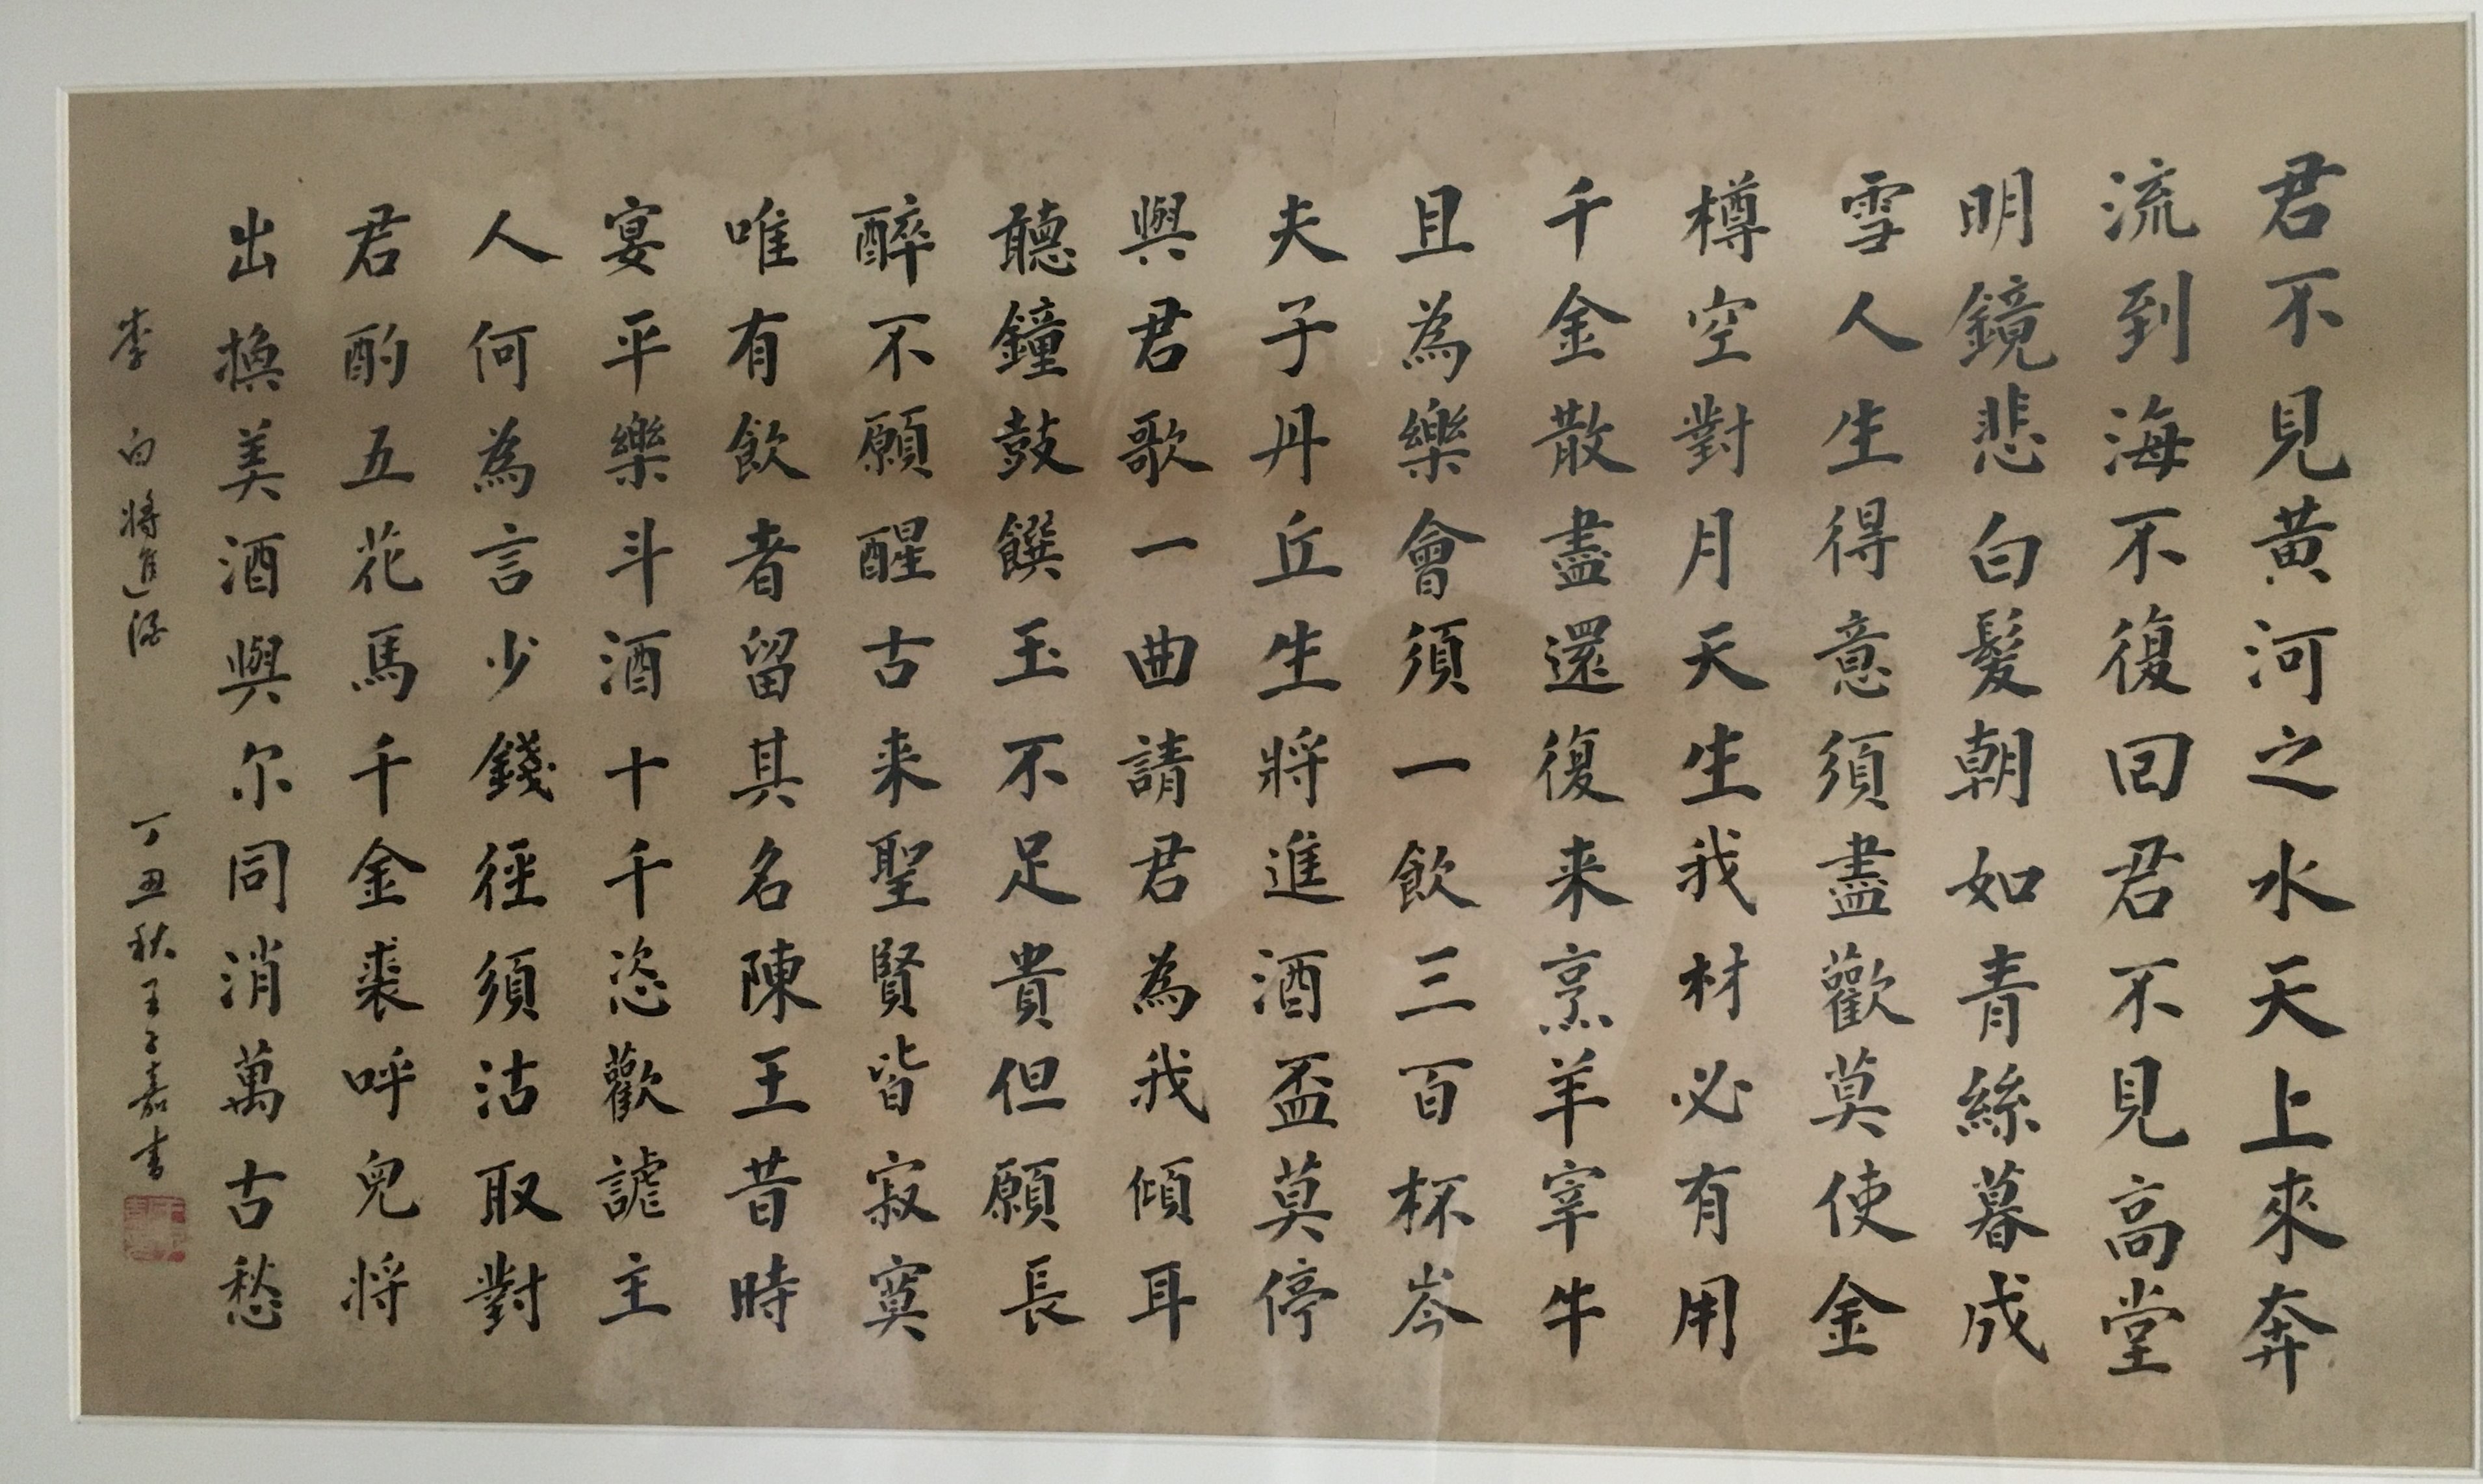 君不見黃河之水天上來奔
流到海不復回君不見高堂
明鏡悲白髮朝如青絲暮成
雪人生得意須盡歡莫使金
樽空對月天生我材必有用
千金散盡還復来烹羊宰牛
且為樂會須一飲三百杯岑
夫子丹丘生將進酒盃莫停
與君歌一曲請君為我傾耳
聽鐘鼓饌玉不足貴但願長
醉不願醒古来聖賢皆寂寞
唯有飲者留其名陳王昔時
宴平樂斗酒十千恣歡謔主
人何為言少錢徑須沽取對
君酌五花馬千金裘呼兒将
出換美酒與尔同消萬古愁
李白將進酒 丁丑秋王子嘉書